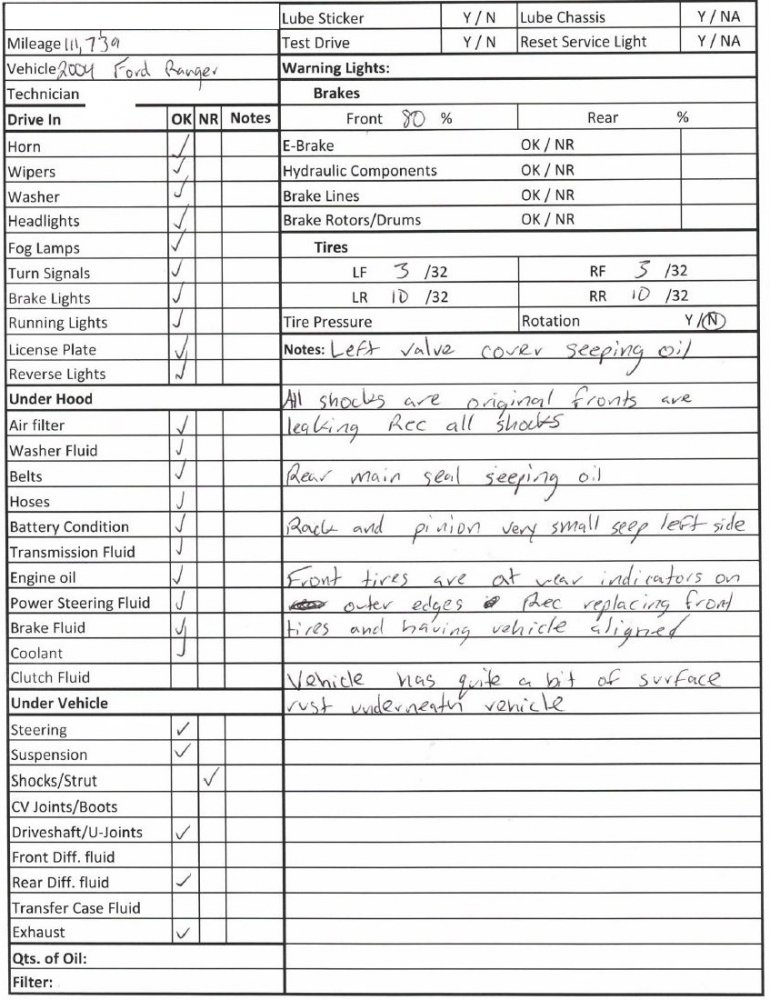 Lube Sticker Y / N Lube Chassis Y / NA
Mileage 111,739 Test Drive Y / N Reset Service Light Y / NA
Vehicle 2004 Ford Ranger Warning Lights:
Technician Brakes
Drive In OK NR Notes Front 80 % Rear %
Horn ✓ E-Brake OK / NR
Wipers ✓ Hydraulic Components OK / NR
Washer ✓ Brake Lines OK / NR
Headlights ✓ Brake Rotors/Drums OK / NR
Fog Lamps ✓ Tires
Turn Signals ✓ LF 3 /32 RF 3 /32
Brake Lights ✓ LR 10 /32 RR 10 /32
Running Lights ✓ Tire Pressure Rotation Y / N
License Plate ✓ Notes: Left valve cover seeping oil
Reverse Lights ✓
Under Hood All shocks are original fronts are
Air filter ✓ leaking Rec all shocks
Washer Fluid ✓
Belts ✓ Rear main seal seeping oil
Hoses ✓
Battery Condition ✓ Rack and pinion very small seep left side
Transmission Fluid ✓
Engine oil ✓ Front tires are at wear indicators on
Power Steering Fluid ✓ outer edges Rec replacing front
Brake Fluid ✓ tires and having vehicle aligned
Coolant ✓
Clutch Fluid Vehicle has quite a bit of surface
Under Vehicle rust underneath vehicle
Steering ✓
Suspension ✓
Shocks/Strut ✓
CV Joints/Boots
Driveshaft/U-Joints ✓
Front Diff. fluid
Rear Diff. fluid ✓
Transfer Case Fluid
Exhaust ✓
Qts. of Oil:
Filter: